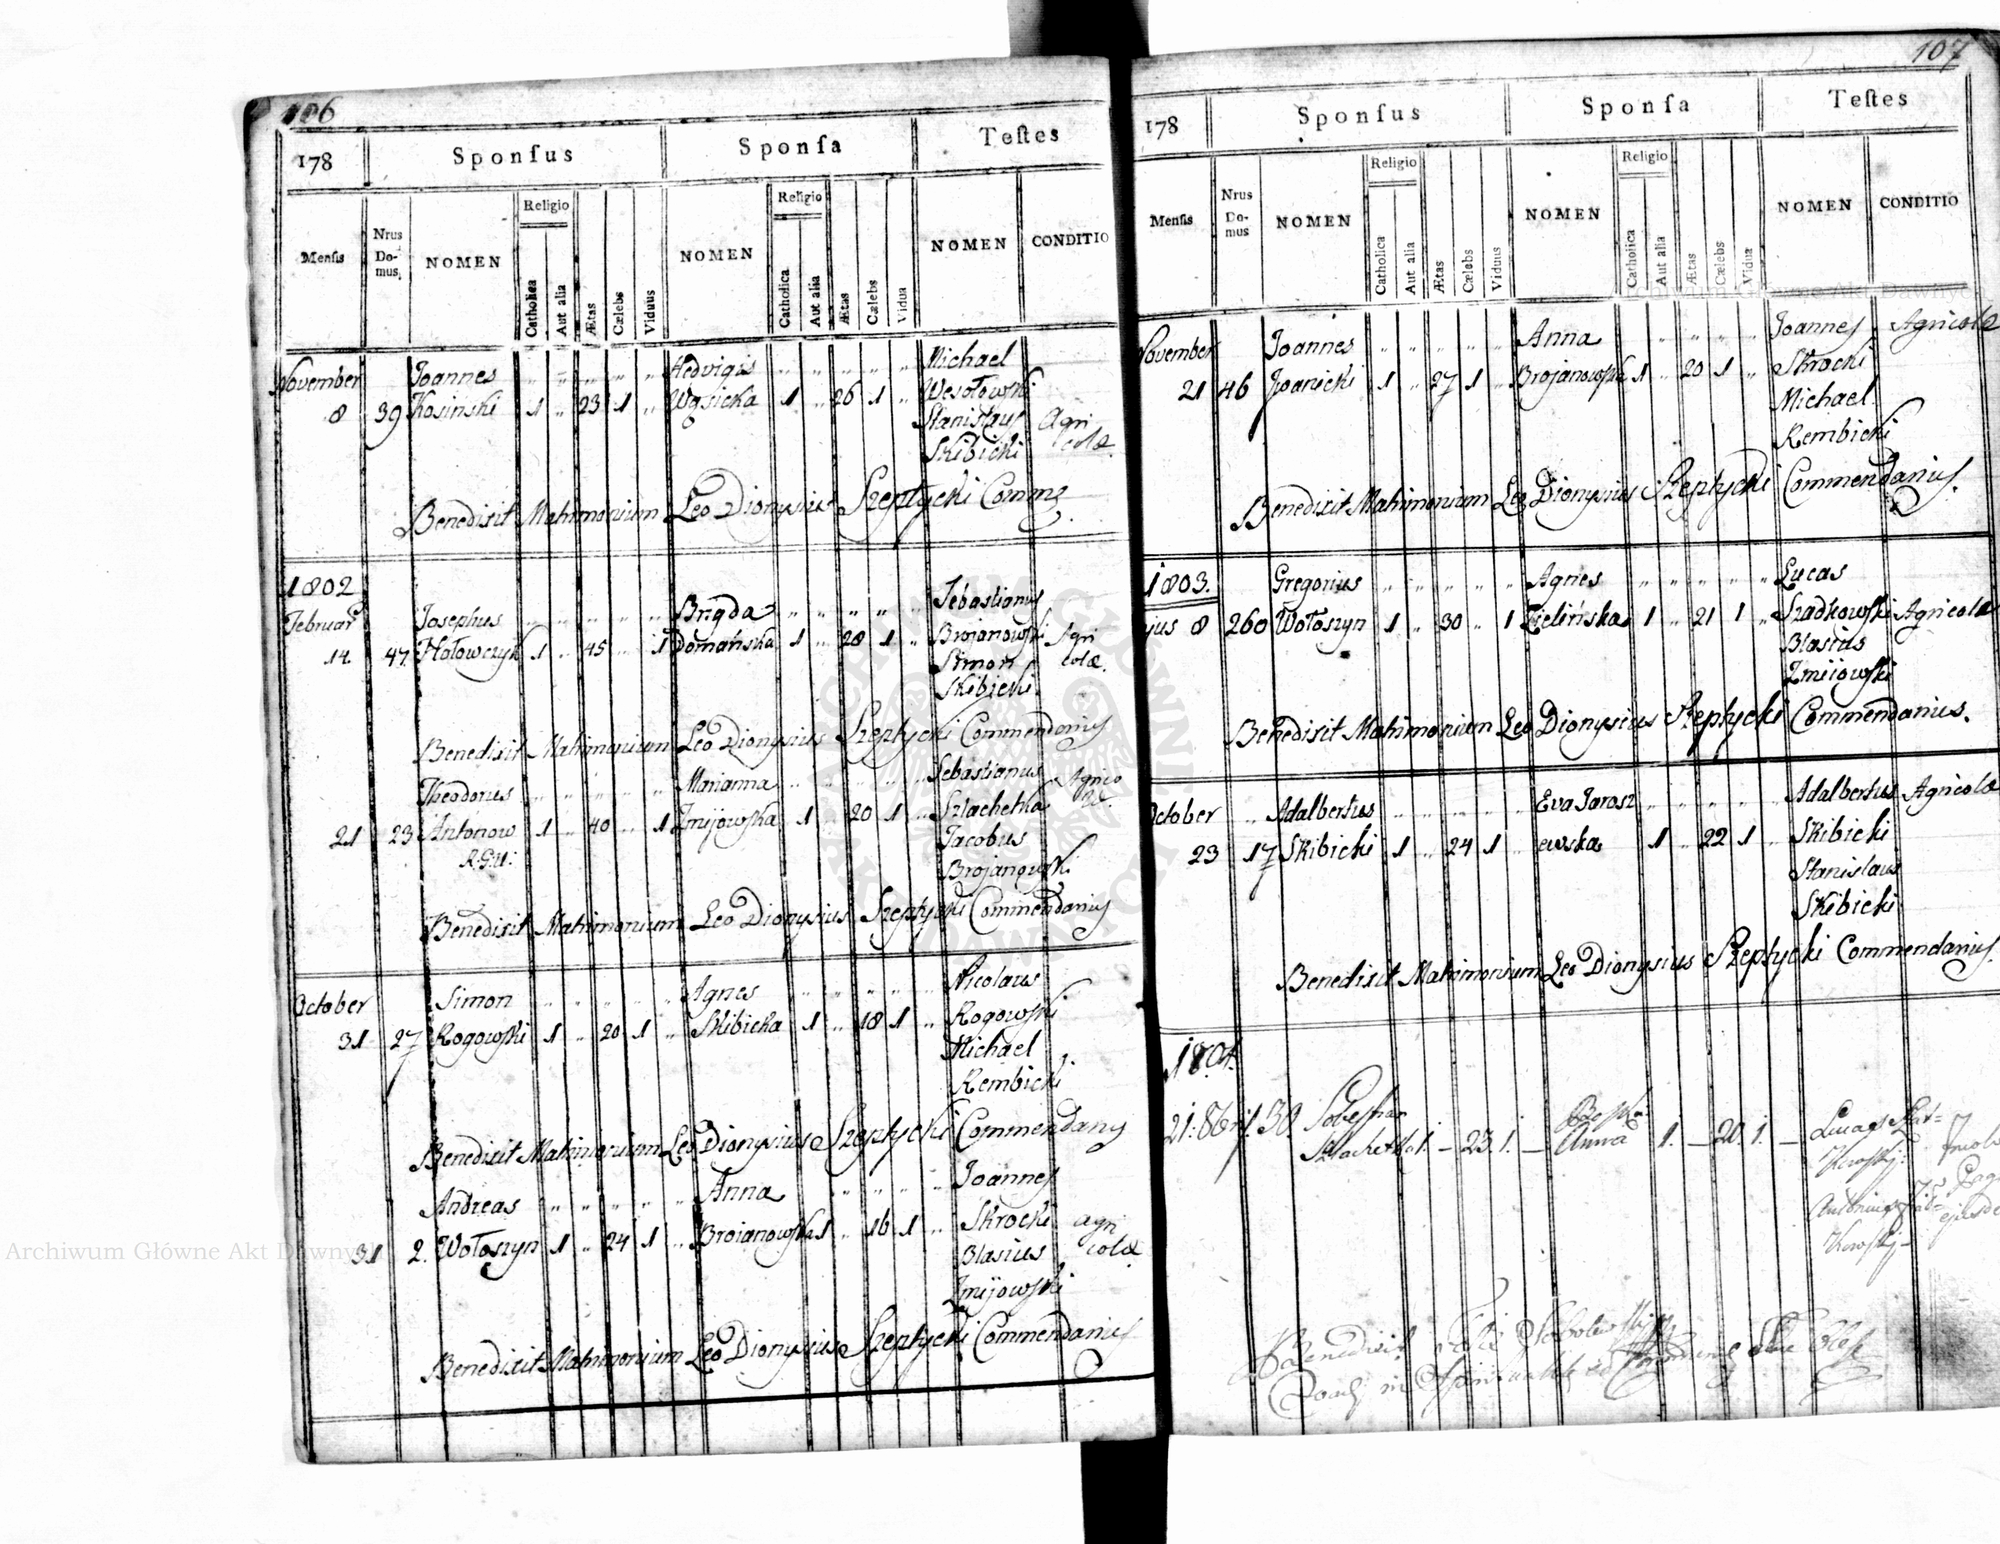 106
178 Sponſus Sponſa Teſtes
Religio Religio
Menſis Nrus Do-mus NOMEN Catholica Aut alia Ætas Cælebs Viduus NOMEN Catholica Aut alia Ætas Cælebs Vidua NOMEN CONDITIO
November Joannes Hedvigis Michael
8 39 Kosinski 1 " 23 1 " Wąsicka 1 " 26 1 " Wesołowski
Stanislaus Agri
Skibicki colæ.
Benedixit Matrimonium Leo Dionysius Szeptycki Comms
1802
Februar Josephus Brigda Sebastianus
14. 47 Hołowczyk 1 " 45 " 1 Domańska 1 " 28 1 " Brojanowski Agri
Simon colæ.
Skibicki
Benedixit Matrimonium Leo Dionysius Szeptycki Commendarius
Theodorus Marianna Sebastianus Agrico
21 23 Antonow 1 " 40 " 1 Zmijowska 1 " 20 1 " Szlachetka
R.G.U: Jacobus
Brojanowski
Benedixit Matrimonium Leo Dionysius Szeptycki Commendarius
October Simon Agnes Nicolaus
31 27 Rogowski 1 " 20 1 " Skibicka 1 " 18 1 " Rogowski
Michael
Rembicki
Benedixit Matrimonium Leo Dionysius Szeptycki Commendarius
Andreas Anna Joannes
31 2. Wołoszyn 1 " 24 1 " Broianowska 1 " 16 1 " Skrocki agri
Blasius colæ
Zmijowski
Benedixit Matrimonium Leo Dionysius Szeptycki Commendarius
107
178 Sponſus Sponſa Teſtes
Religio Religio
Menſis Nrus Do-mus NOMEN Catholica Aut alia Ætas Cælebs Viduus NOMEN Catholica Aut alia Ætas Cælebs Vidua NOMEN CONDITIO
November Joannes Anna Joannes Agricolæ
21 46 Joanicki 1 " 27 1 " Brojanowska 1 " 20 1 " Skrocki
Michael
Rembicki
Benedixit Matrimonium Leo Dionysius Szeptycki Commendarius.
1803. Gregorius Agnes Lucas
jus 8 260 Wołoszyn 1 " 30 " 1 Zielińska 1 " 21 1 " Szadkowski Agricolæ
Blasius
Zmijowski
Benedixit Matrimonium Leo Dionysius Szeptycki Commendarius.
October Adalbertus Eva Jarosz Adalbertus Agricolæ
23 17 Skibicki 1 " 24 1 " ewska 1 " 22 1 " Skibicki
Stanislaus
Skibicki
Benedixit Matrimonium Leo Dionysius Szeptycki Commendarius.
1804.
21. 8bris. 30.
Szlachetka 1. – 23. 1. – Anna 1. – 20. 1. – Lucas
Antonius
Benedixit
Archiwum Główne Akt Dawnych
Archiwum Główne Akt Dawnych
ARCHIWUM GŁÓWNE AKT DAWNYCH